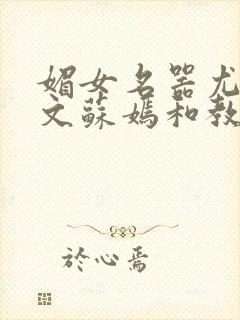 媚女名器尤
文蘇媽和教
於心焉